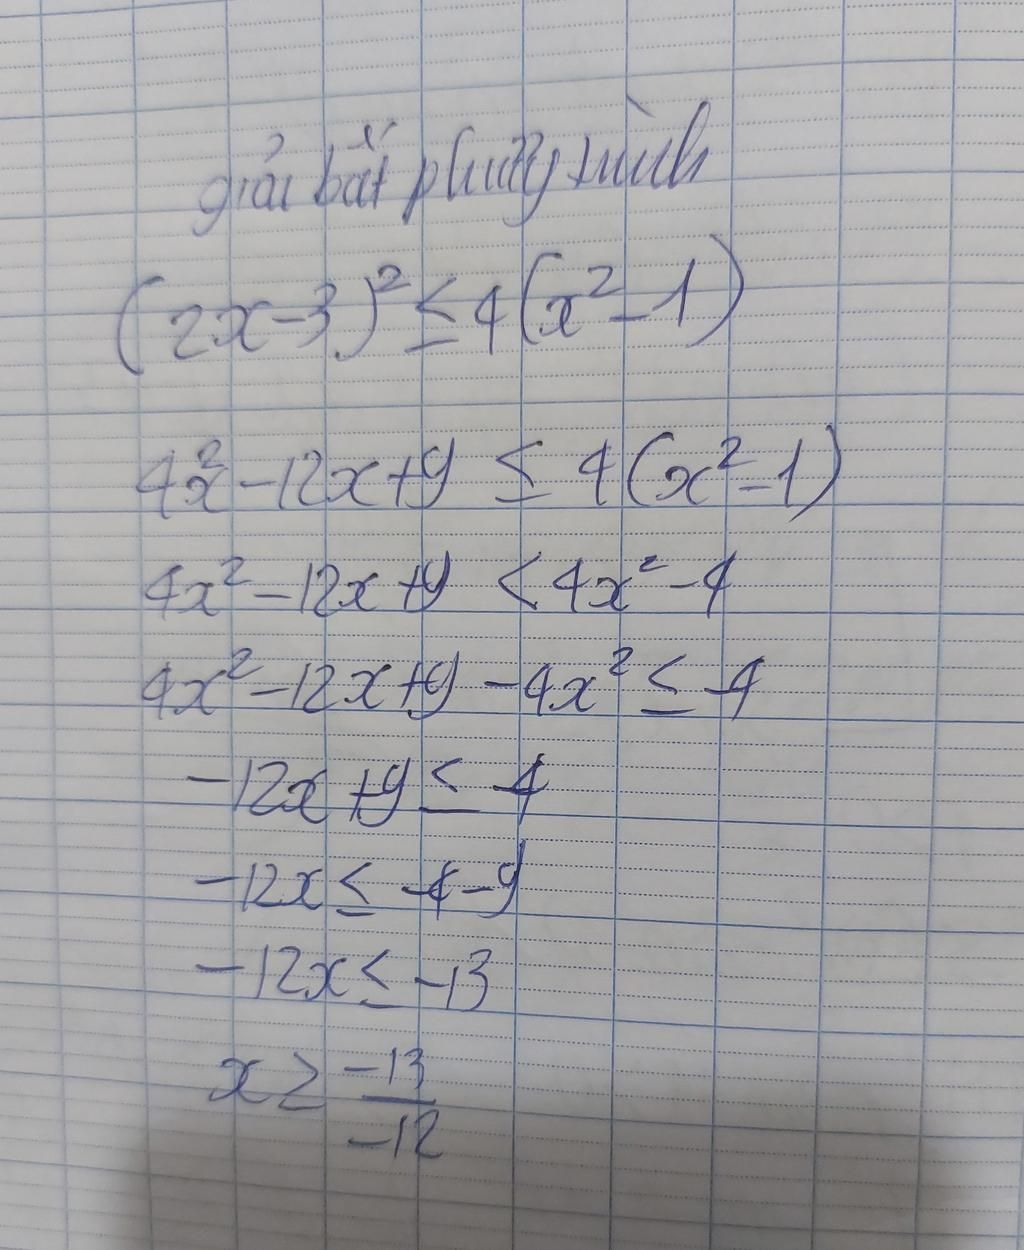 giải bất phương trình
(2x-3)² ≤ 4(x²-1)
4x²-12x+9 ≤ 4(x²-1)
4x²-12x+9 < 4x²-4
4x²-12x+9-4x² ≤ -4
-12x+9 ≤ -4
-12x ≤ -4-9
-12x ≤ -13
x ≥ -13/-12